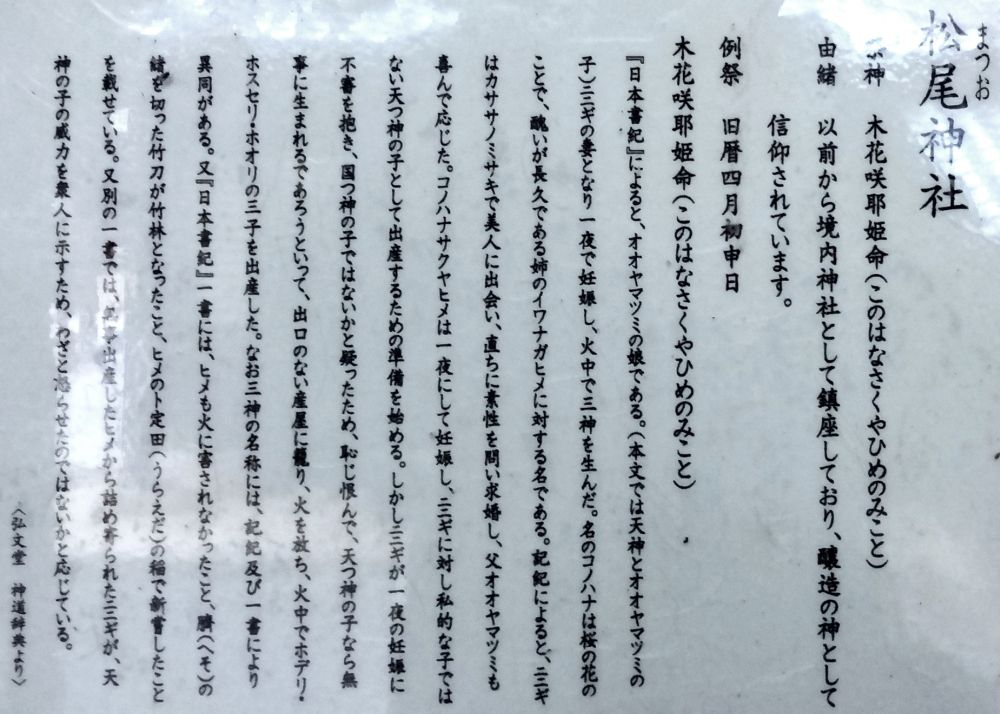 まつお
松尾神社
祭神　木花咲耶姫命（このはなさくやひめのみこと）
由緒　以前から境内神社として鎮座しており、醸造の神として
信仰されています。
例祭　旧暦四月初申日
木花咲耶姫命（このはなさくやひめのみこと）
『日本書紀』によると、オオヤマツミの娘である。（本文では天神とオオヤマツミの
子）ニニギの妻となり一夜で妊娠し、火中で三神を生んだ。名のコノハナは桜の花の
ことで、醜いが長久である姉のイワナガヒメに対する名である。記紀によると、ニニギ
はカササノミサキで美人に出会い、直ちに素性を問い求婚し、父オオヤマツミも
喜んで応じた。コノハナサクヤヒメは一夜にして妊娠し、ニニギに対し私的な子では
ない天つ神の子として出産するための準備を始める。しかしニニギが一夜の妊娠に
不審を抱き、国つ神の子ではないかと疑ったため、恥じ恨んで、天つ神の子なら無
事に生まれるであろうといって、出口のない産屋に籠り、火を放ち、火中でホデリ・
ホスセリ・ホオリの三子を出産した。なお三神の名称には、記紀及び一書により
異同がある。又『日本書紀』一書には、ヒメも火に害されなかったこと、臍（へそ）の
緒を切った竹刀が竹林となったこと、ヒメの卜定田（うらえだ）の稲で新嘗したこと
を載せている。又別の一書では、出産したヒメから詰め寄られたニニギが、天
神の子の威力を衆人に示すため、わざと怒らせたのではないかと応じている。
〈弘文堂　神道辞典より〉